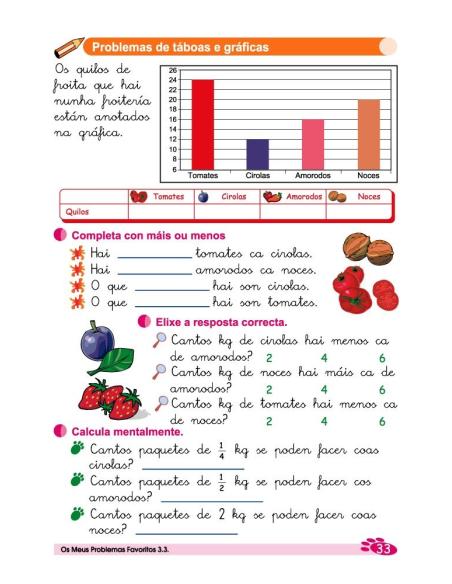 Problemas de táboas e gráficas
Os quilos de
froita que hai
nunha froitería
están anotados
na gráfica.
26
24
22
20
18
16
14
12
10
8
6
Tomates Cirolas Amorodos Noces
Tomates Cirolas Amorodos Noces
Quilos
Completa con máis ou menos
Hai ____________ tomates ca cirolas.
Hai ____________ amorodos ca noces.
O que ____________ hai son cirolas.
O que ____________ hai son tomates.
Elixe a resposta correcta.
Cantos kg de cirolas hai menos ca
de amorodos? 2 4 6
Cantos kg de noces hai máis ca de
amorodos? 2 4 6
Cantos kg de tomates hai menos ca
de noces? 2 4 6
Calcula mentalmente.
Cantos paquetes de 1/4 kg se poden facer coas
cirolas? ____________
Cantos paquetes de 1/2 kg se poden facer cos
amorodos? ____________
Cantos paquetes de 2 kg se poden facer coas
noces? ____________
Os Meus Problemas Favoritos 3.3.
33